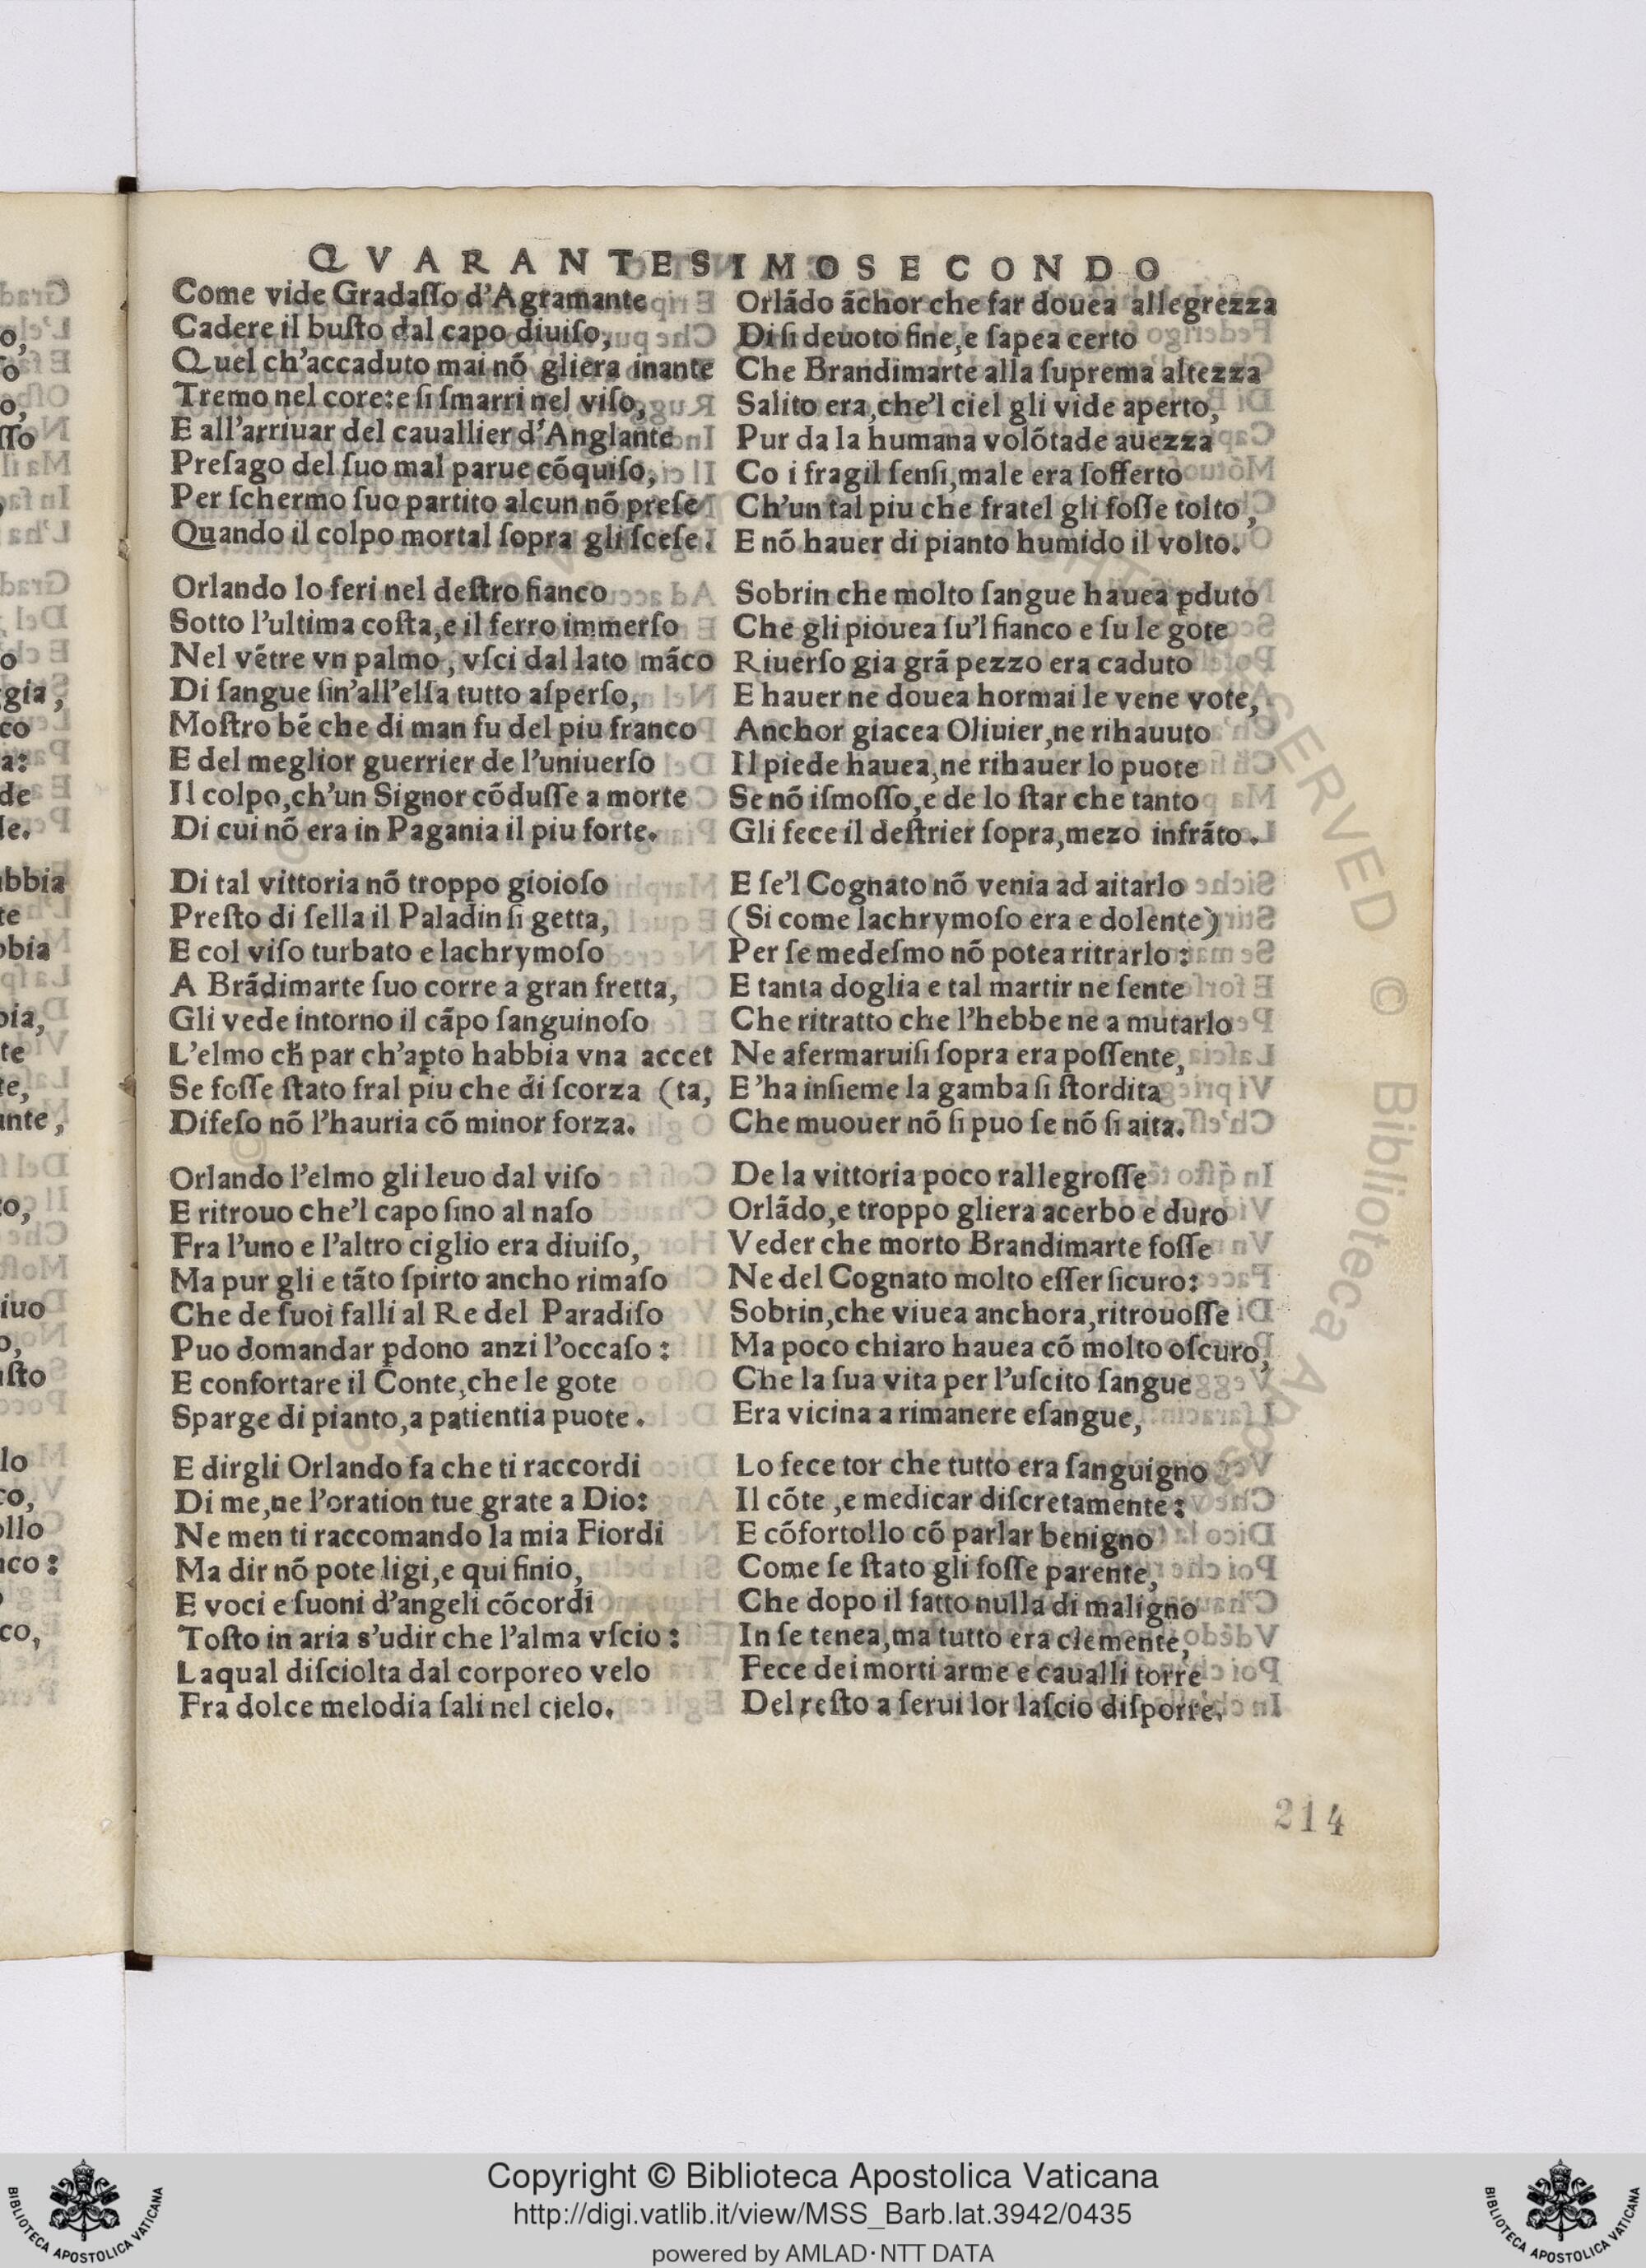 QVARANTESIMOSECONDO
Come vide Gradaſſo d'Agramante
Cadere il buſto dal capo diuiſo,
Quel ch'accaduto mai nõ gliera inante
Tremo nel core:e ſi ſmarri nel viſo,
E all'arriuar del cauallier d'Anglante
Preſago del ſuo mal parue cõquiſo,
Per ſchermo ſuo partito alcun nõ preſe
Quando il colpo mortal ſopra gli ſceſe.
Orlando lo feri nel deſtro fianco
Sotto l'ultima coſta,e il ferro immerſo
Nel vẽtre vn palmo, vſci dal lato mãco
Di ſangue ſin'all'elſa tutto aſperſo,
Moſtro bẽ che di man fu del piu franco
E del meglior guerrier de l'uniuerſo
Il colpo,ch'un Signor cõduſſe a morte
Di cui nõ era in Pagania il piu forte.
Di tal vittoria nõ troppo gioioſo
Preſto di ſella il Paladin ſi getta,
E col viſo turbato e lachrymoſo
A Brãdimarte ſuo corre a gran fretta,
Gli vede intorno il cãpo ſanguinoſo
L'elmo ch̃ par ch'aꝑto habbia vna accet
Se foſſe ſtato fral piu che di ſcorza (ta,
Difeſo nõ l'hauria cõ minor forza.
Orlando l'elmo gli leuo dal viſo
E ritrouo che'l capo ſino al naſo
Fra l'uno e l'altro ciglio era diuiſo,
Ma pur gli e tãto ſpirto ancho rimaſo
Che de ſuoi falli al Re del Paradiſo
Puo domandar ꝑdono anzi l'occaſo:
E confortare il Conte,che le gote
Sparge di pianto,a patientia puote.
E dirgli Orlando fa che ti raccordi
Di me,ne l'oration tue grate a Dio:
Ne men ti raccomando la mia Fiordi
Ma dir nõ pote ligi,e qui finio,
E voci e ſuoni d'angeli cõcordi
Toſto in aria s'udir che l'alma vſcio:
Laqual diſciolta dal corporeo velo
Fra dolce melodia ſali nel cielo.
Orlãdo ãchor che far douea allegrezza
Di ſi deuoto fine,e ſapea certo
Che Brandimarte alla ſuprema altezza
Salito era,che'l ciel gli vide aperto,
Pur da la humana volõtade auezza
Co i fragil ſenſi,male era ſofferto
Ch'un tal piu che fratel gli foſſe tolto,
E nõ hauer di pianto humido il volto.
Sobrin che molto ſangue hauea ꝑduto
Che gli piouea ſu'l fianco e ſu le gote
Riuerſo gia grã pezzo era caduto
E hauer ne douea hormai le vene vote,
Anchor giacea Oliuier,ne rihauuto
Il piede hauea,ne rihauer lo puote
Se nõ iſmoſſo,e de lo ſtar che tanto
Gli fece il deſtrier ſopra,mezo infrãto.
E ſe'l Cognato nõ venia ad aitarlo
(Si come lachrymoſo era e dolente)
Per ſe medeſmo nõ potea ritrarlo:
E tanta doglia e tal martir ne ſente
Che ritratto che l'hebbe ne a mutarlo
Ne afermaruiſi ſopra era poſſente,
E'ha inſieme la gamba ſi ſtordita
Che muouer nõ ſi puo ſe nõ ſi aita.
De la vittoria poco rallegroſſe
Orlãdo,e troppo gliera acerbo e duro
Veder che morto Brandimarte foſſe
Ne del Cognato molto eſſer ſicuro:
Sobrin,che viuea anchora,ritrouoſſe
Ma poco chiaro hauea cõ molto oſcuro,
Che la ſua vita per l'uſcito ſangue
Era vicina a rimanere eſangue,
Lo fece tor che tutto era ſanguigno
Il cõte,e medicar diſcretamente:
E cõfortollo cõ parlar benigno
Come ſe ſtato gli foſſe parente,
Che dopo il fatto nulla di maligno
In ſe tenea,ma tutto era clemente,
Fece dei morti arme e caualli torre
Del reſto a ſerui lor laſcio diſporre.
214
Copyright © Biblioteca Apostolica Vaticana
http://digi.vatlib.it/view/MSS_Barb.lat.3942/0435
powered by AMLAD·NTT DATA
BIBLIOTECA APOSTOLICA VATICANA
BIBLIOTECA APOSTOLICA VATICANA